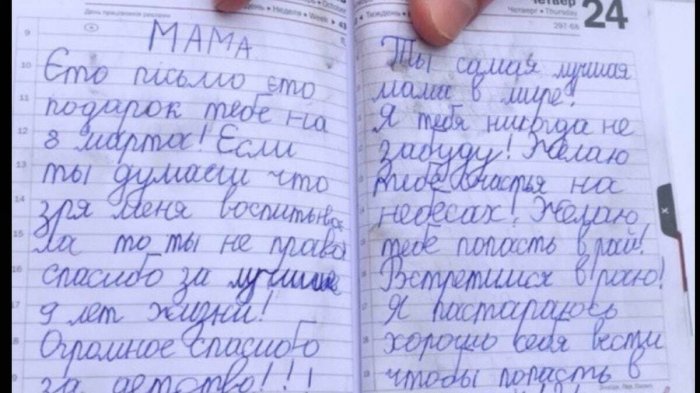 День працівника реклами
День • Неделя • Week • 43
Тиждень
Четвер
Четверг • Thursday
24
297-68
МАМА
Єто пісьмо єто
подарок тебе на
8 марта! Єсли
ты думаеш что
зря меня воспитыва
ла то ты не права
спасибо за лучшие
9 лет жизни!
Огромное спасибо
за детство!!!
Ты самая лучшая
мама в мире!
Я тебя никогда не
забуду! Желаю
тебе счастья на
небесах! Желаю
тебе попасть в рай!
Встретимся в раю!
Я пастараюсь
хорошо себя вести
чтобы попасть в